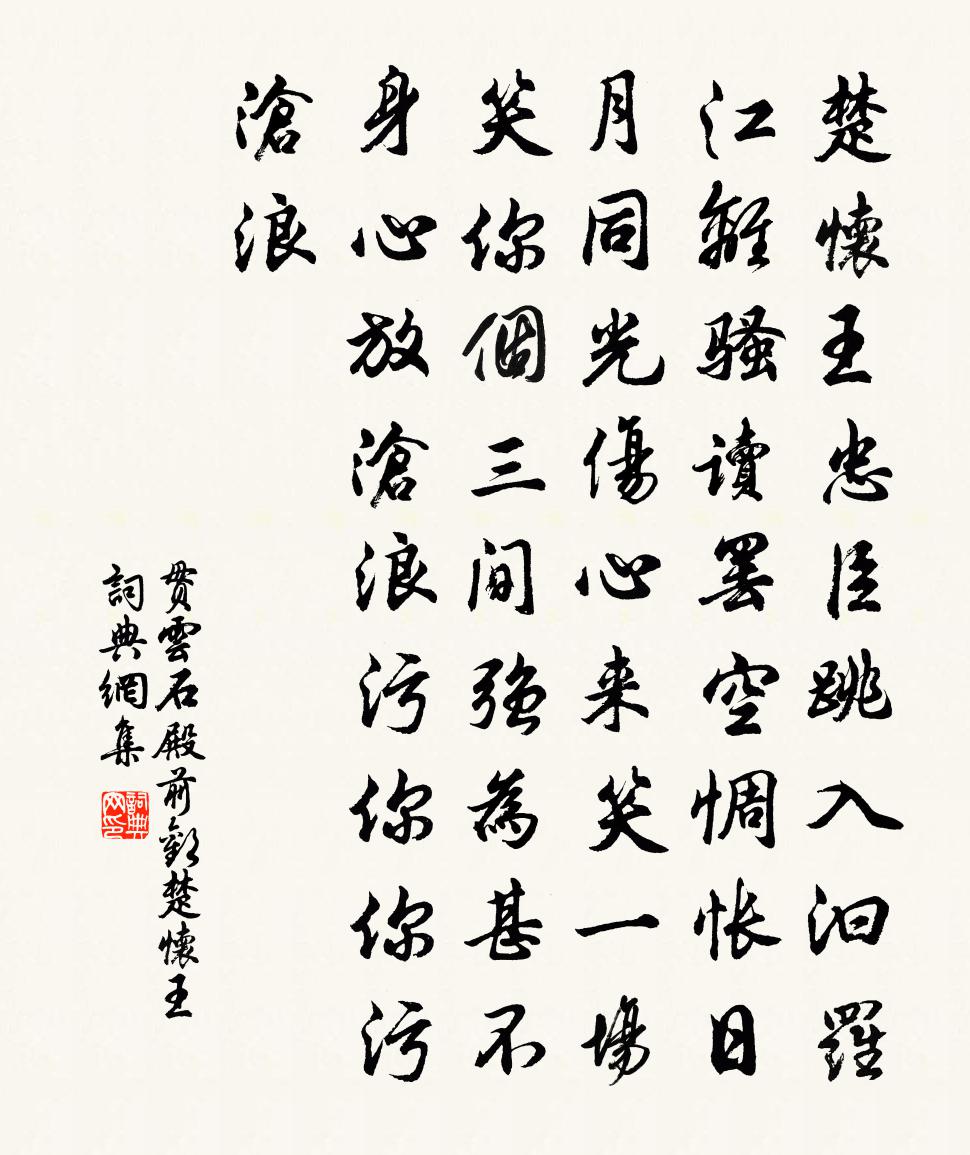 楚懷王忠臣跳入汨羅
江離騷讀罷空惆悵日
月同光傷心来笑一場
笑你個三间强為甚不
身心放滄浪污你你污
滄浪
贯雲石殿前歡楚懷王
詞典網集
詞典网印